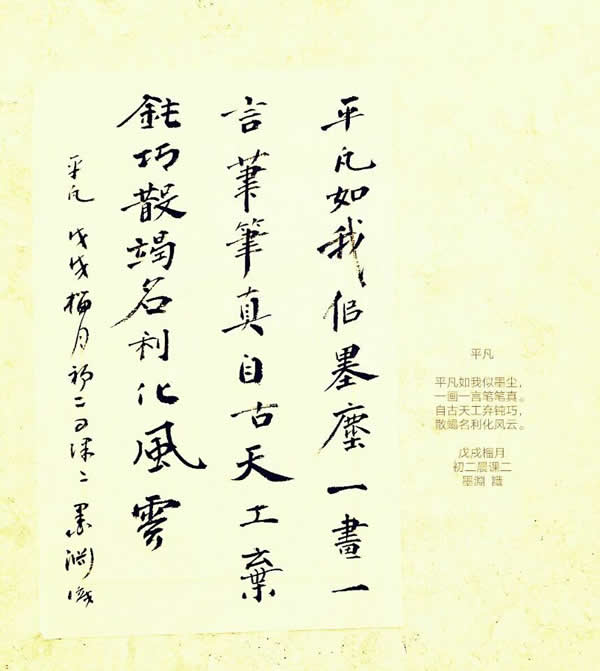 平凡如我佀墨塵一畫一
言筆筆真自古天工棄
鈍巧散竭名利化風雲
平凡 戊戌榴月初二晨课二 墨渊識
平凡
平凡如我似墨尘，
一画一言笔笔真。
自古天工弃钝巧，
散竭名利化风云。
戊戌榴月
初二晨课二
墨淵 識